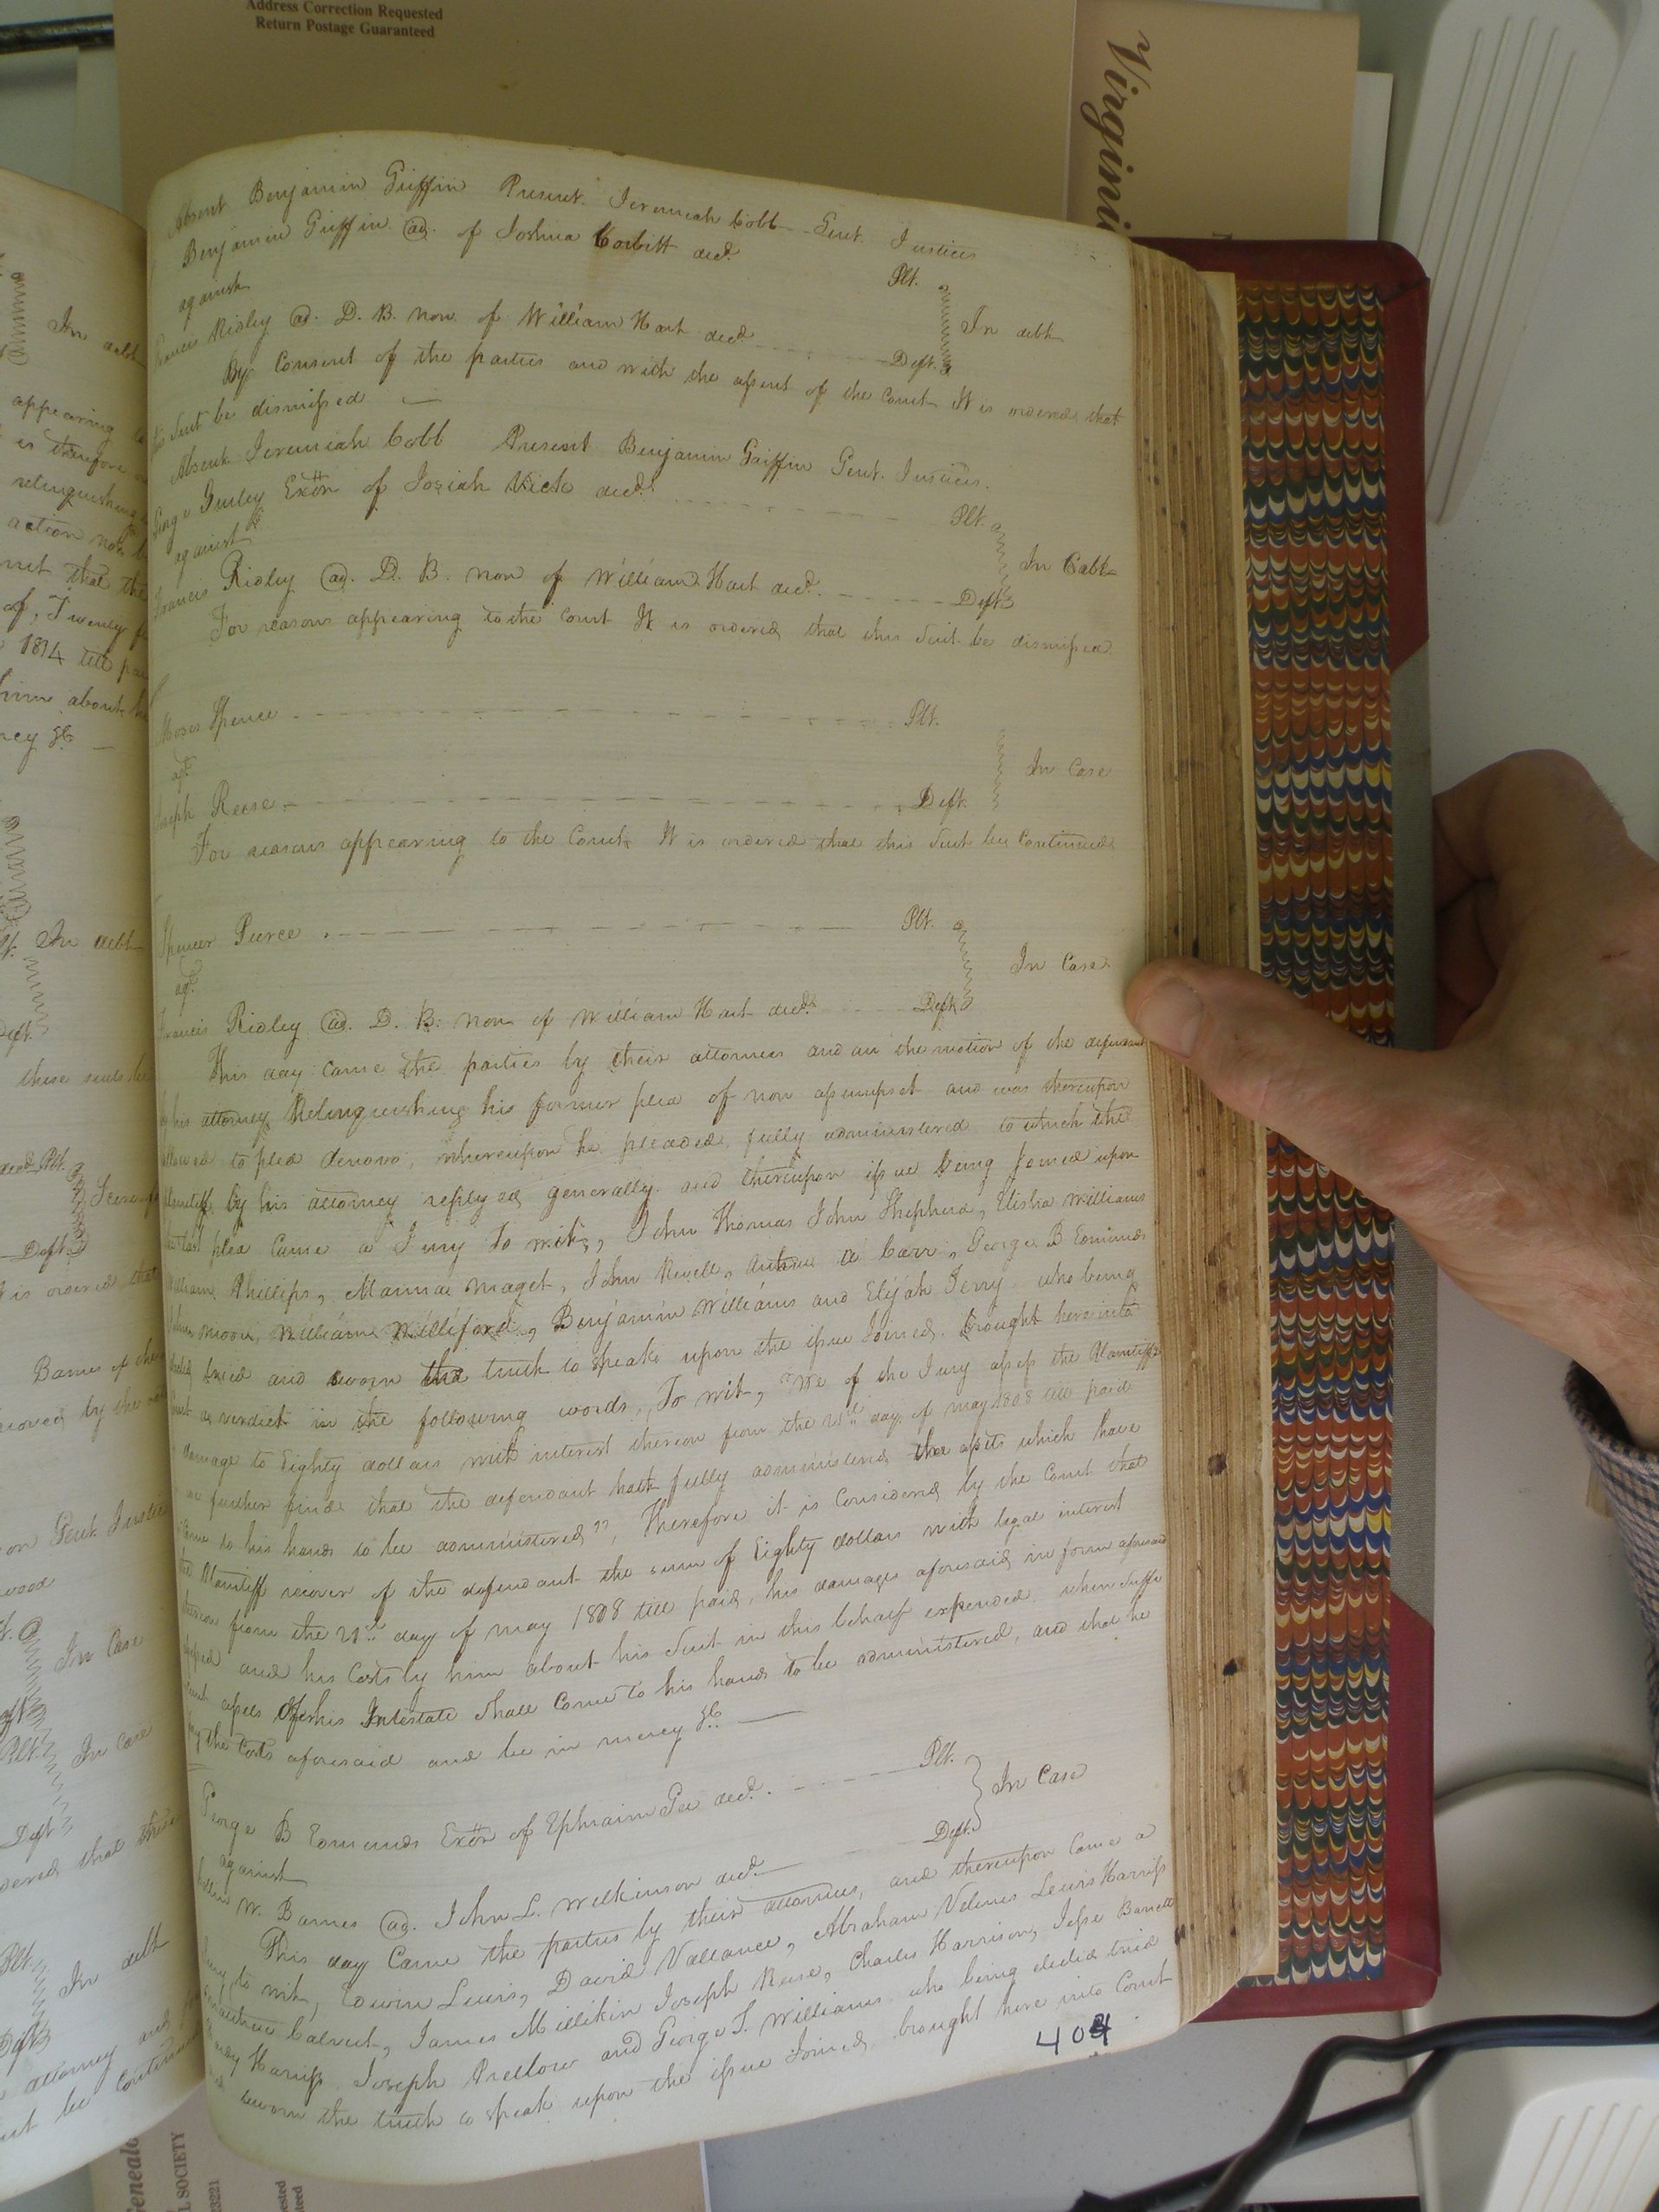 Address Correction Requested
Return Postage Guaranteed
Virgini
Absent Benjamin Griffin Present Jeremiah Cobb Gent. Justices
Benjamin Griffin ad. of Joshua Corbitt decd. Plt.
against In debt
Francis Ridley ad. D. B. non of William Hart decd. Deft.
By Consent of the parties and with the assent of the Court It is ordered that
this Suit be dismissed
Absent Jeremiah Cobb Present Benjamin Griffin Gent. Justices.
Gurley Exōr of Josiah Vick decd. Plt.
against In Debt
Francis Ridley ad. D. B. non of William Hart decd. Deft.
For reasons appearing to the Court It is ordered that this Suit be dismissed
Moses Spence Plt.
agt. In Case
Joseph Reese Deft.
For reasons appearing to the Court It is ordered that this Suit be Continued
Spencer Pierce Plt.
agt. In Case
Francis Ridley ad. D. B. non of William Hart decd. Deft.
This day came the parties by their attornies and on the motion of the defendant
by his attorney Relinquishing his former plea of non assumpsit and was thereupon
allowed to plea denovo, whereupon he pleaded fully administered to which the
plaintiff by his attorney replyed generally and thereupon issue being joined upon
plea Came a Jury to wit, John Thomas John Shepherd, Elisha Williams
William Phillips, Mannae Maget, John Revell, Carr, George B Edmunds
Moore, William Williford, Benjamin Williams and Elijah Ferry who being
tried and sworn the truth to speak upon the issue Joined. Brought here into
Court a verdict in the following words, To wit, "We of the Jury assess the Plaintiffs
damage to Eighty dollars with interest thereon from the 21st day of may 1808 till paid
we further find that the defendant hath fully administered the assets which have
came to his hands to be administered", Therefore it is Considered by the Court that
the Plaintiff recover of the defendant the sum of Eighty dollars with legal interest
thereon from the 21st day of may 1808 till paid, his damages aforesaid in form aforesaid
assessed and his Costs by him about his Suit in this behalf expended when suffi
cient assets of his Intestate shall Come to his hands to be administered, and that he
pay the Costs aforesaid and be in mercy &c.
George B Edmunds Exōr of Ephraim Gee decd. Plt.
against In Case
W. Barnes ad. John L. Wilkinson decd. Deft.
This day Came the parties by their attornies, and thereupon Came a
Jury to wit, Edwin Lewis, David Vallance, Abraham Velines Lewis Harriss
Calvert, James Millikin Joseph Reese, Charles Harrison, Jesse Barrett
Harriss Joseph Prellow and George T. Williams who being elected tried
and sworn the truth to speak upon the issue Joined, brought here into Court
404
In debt
appearing
is therefore
relinquishing
action
that the
of, Twenty
1814 till
him about
&c.
In debt
Deft.
these suits be
decd. Plt.
Deft.
is ordered that
Barnes
by the
Gent. Justices
In Case
Plt. In Case
Deft.
ordered that these
Plt. In debt
Deft.
attorney and
be Continued
Genealo
L SOCIETY
23221